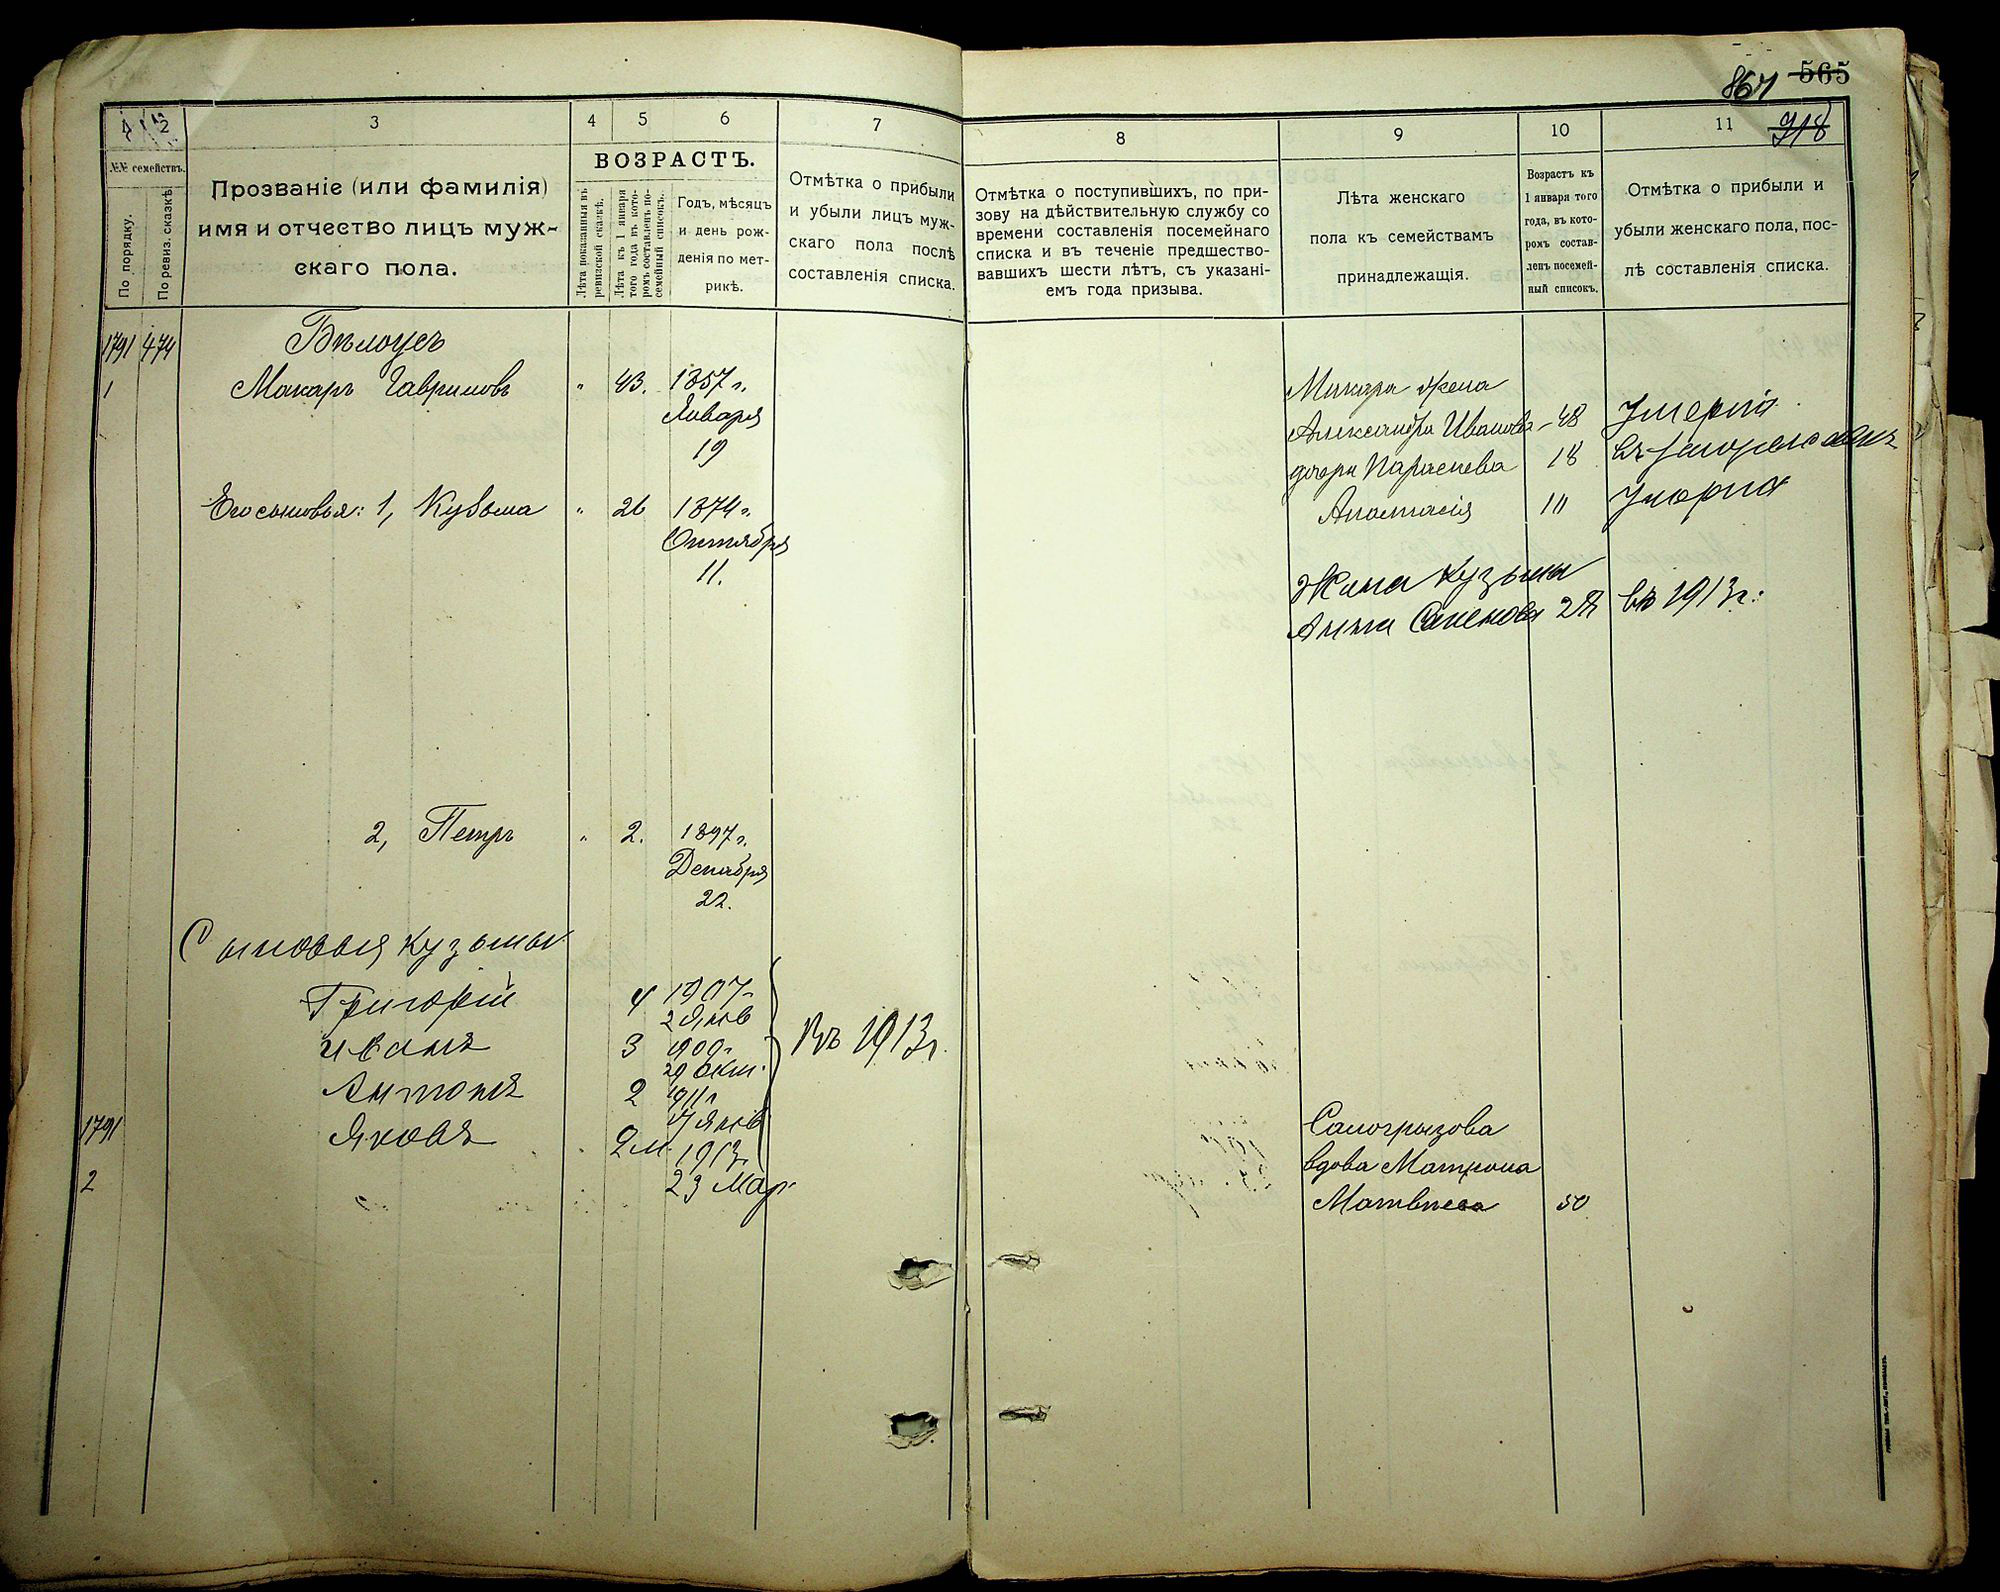 867 565
718
1 2 3 4 5 6 7
№№ семействъ.
По порядку.
По ревиз. сказкѣ.
Прозваніе (или фамилія)
имя и отчество лицъ муж-
скаго пола.
ВОЗРАСТЪ.
Лѣта показанныя въ
ревизской сказкѣ.
Лѣта къ 1 января
того года въ кото-
ромъ составленъ по-
семейный списокъ.
Годъ, мѣсяцъ
и день рож-
денія по мет-
рикѣ.
Отмѣтка о прибыли
и убыли лицъ муж-
скаго пола послѣ
составленія списка.
1791 474 Бѣлоусъ
1 Макаръ Гавриловъ " 43. 1857 г.
Января
19
Его сыновья: 1, Кузьма " 26 1874 г.
Октября
11.
2, Петръ " 2. 1897 г.
Декабря
22.
Сыновья Кузьмы
Григорій 4 1907 г.
2 Янв
Иванъ 3 1909 г. Въ 1913 г.
29 Окт.
Антонъ 2 1911 г.
17 Янв
1791 Яковъ 2 м. 1913 г.
2 23 Мар.
8 9 10 11
Отмѣтка о поступившихъ, по при-
зову на дѣйствительную службу со
времени составленія посемейнаго
списка и въ теченіе предшество-
вавшихъ шести лѣтъ, съ указані-
емъ года призыва.
Лѣта женскаго
пола къ семействамъ
принадлежащія.
Возрастъ къ
1 января того
года, въ кото-
ромъ состав-
ленъ посемей-
ный списокъ.
Отмѣтка о прибыли и
убыли женскаго пола, пос-
лѣ составленія списка.
Макара жена
Александра Иванова - 48 Умерла.
дочери Параскева 18
Анастасія 10 Умерла
Жена Кузьмы
Анна Семенова 27 въ 1913 г.
Самогрызова
вдова Матрона
Матвѣева 50